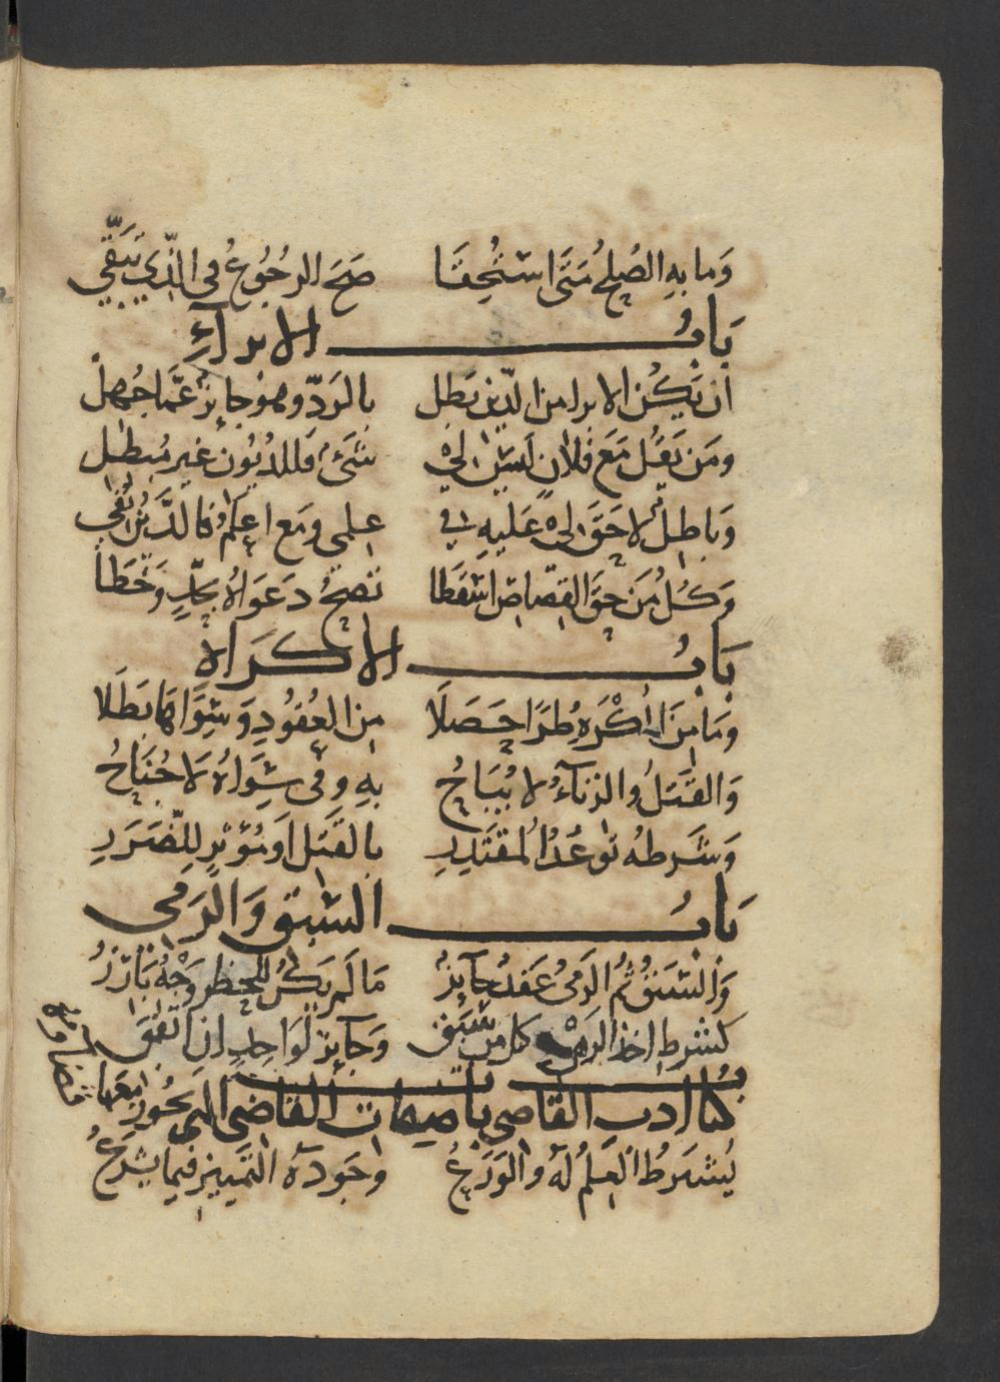 وَما بِهِ الصُلحُ مَتَى اسْتُحِقَا صَحَ الرجُوعُ في الذّي تَبَقّى
بَابُ الابرآءِ
ان يَكُن الابرا من الدّين بَطل بالرَدّ وهو جايزٌ عَمَّا جُهل
ومَن يَقُل مَع فلانٍ ليسَ لي شَئٌ فللدُيُون غير مُبطِل
وَباطِلٌ لا حَقَ لي عَلَيهِ في علمي ومَع اعلَمُ فالدَّينُ نُفي
وَكُلُ مَن حَقَ القصَاص اسْقَطَا تصحُ دعَواهُ بحَدٍّ وَخَطَا
بَابُ الاكرَاه
وَمَا مِنَ المُكْرَهِ طُرًا حَصَلَا مِن العُقُودِ وَسِوَاهَا بَطَلَا
وَالقَتلُ والزناءُ لا يُبَاحُ بهِ وفي سِوَاهُ لَا جُنَاحُ
وَشَرطهُ توعُدُ المقتَدِرِ بالقَتل اَو مُؤثرٍ للضَرَرِ
بَابُ السَبق وَالرَمي
وَالسَبقُ ثُم الرَمي عَقدٌ جآيزُ مَا لَم يَكُن للحظر وَجْهٌ بَارزُ
كشرطِ اخذ الرَهنِ كل من سَبَق وَجآيزٌ لوَاحدٍ ان اتفَق
كتاب ادب القاضي باب صفات القاضي التي يجُوز معَها قضاؤه
يُشترطُ العلمُ لهُ والوَرَعُ وجَودَة التَمييز فيما يشرَعُ